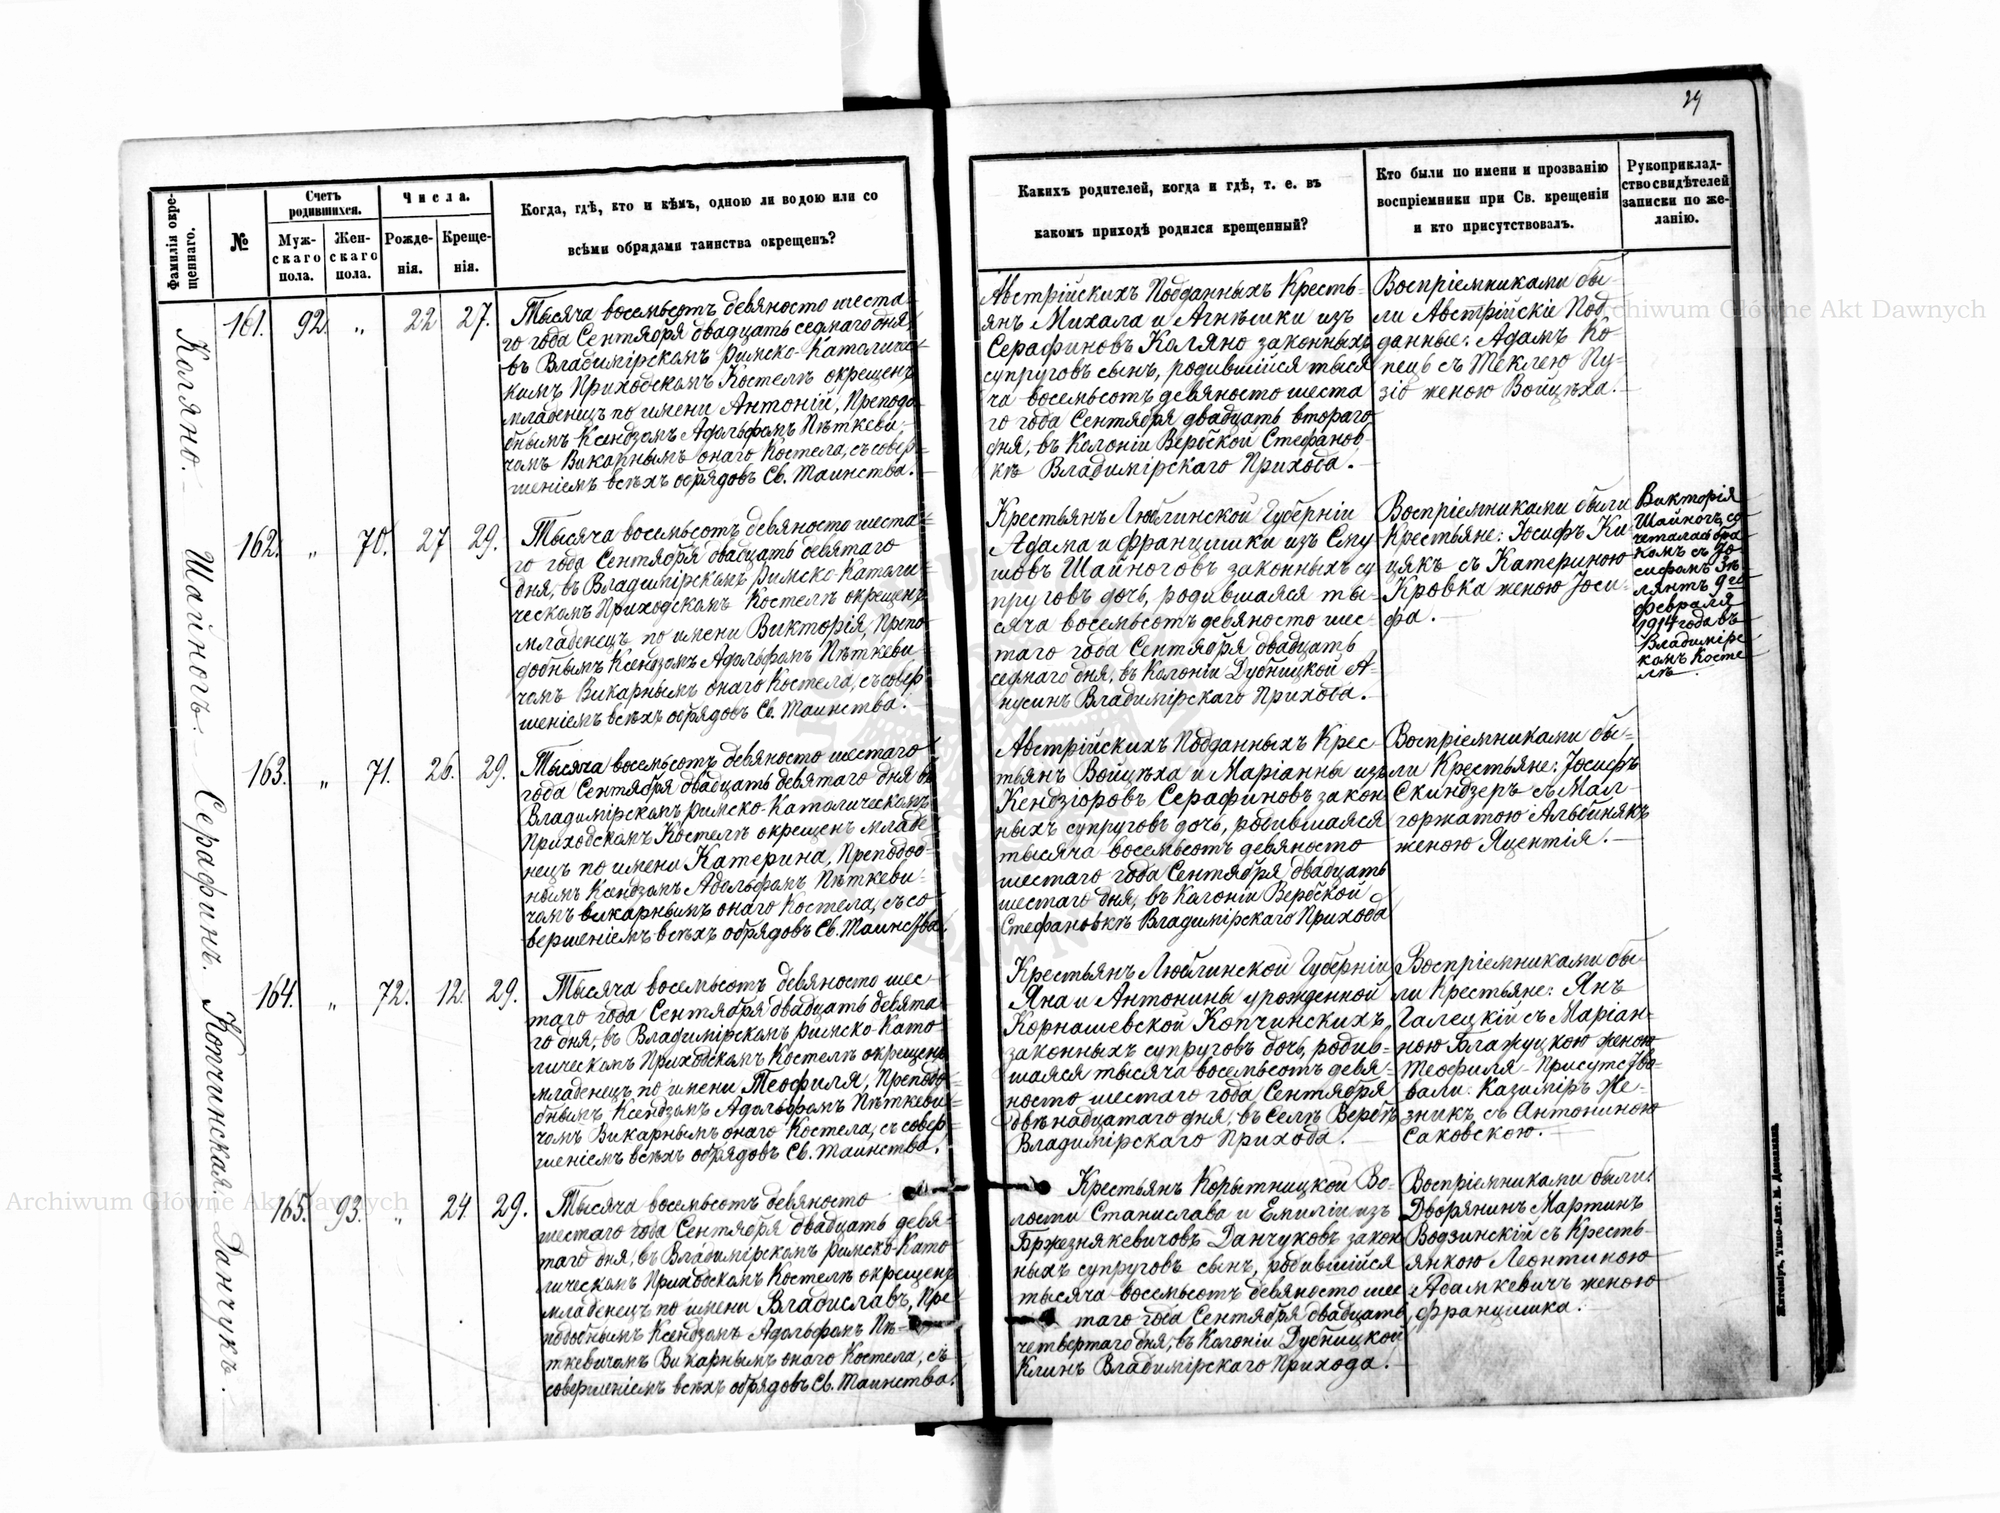 29
Фамилія окре-
щеннаго.
№
Счетъ
родившихся.
Муж-
скаго
пола.
Жен-
скаго
пола.
Числа.
Рожде-
нія.
Креще-
нія.
Когда, гдѣ, кто и кѣмъ, одною ли водою или со
всѣми обрядами таинства окрещенъ?
Какихъ родителей, когда и гдѣ, т. е. въ
какомъ приходѣ родился крещенный?
Кто были по имени и прозванію
воспріемники при Св. крещеніи
и кто присутствовалъ.
Рукоприклад-
ство свидѣтелей
записки по же-
ланію.
Коляно.
161. 92. „ 22 27.
Тысяча восемьсотъ девяносто шеста-
го года Сентября двадцать седмаго дня,
въ Владимірскомъ Римско-Католичес-
комъ Приходскомъ Костелѣ окрещенъ
младенецъ по имени Антоній, Преподо-
бнымъ Ксендзомъ Адольфомъ Пѣткеви-
чомъ Викарнымъ онаго Костела, съ совер-
шеніемъ всѣхъ обрядовъ Св. Таинства.
Австрійскихъ Подданныхъ Кресть-
янъ Михала и Агнѣшки изъ
Серафиновъ Коляно законныхъ
супруговъ сынъ, родившійся тыся
ча восемьсотъ девяносто шеста
го года Сентября двадцать втораго
дня, въ Колоніи Вербской Стефанов-
кѣ Владимірскаго Прихода.
Воспріемниками бы-
ли Австрійскіе Под-
данные: Адамъ Ко-
пецъ съ Теклею Пу-
зіо женою Войцѣха.
Шайногъ.
162. „ 70. 27 29.
Тысяча восемьсотъ девяносто шеста-
го года Сентября двадцать девятаго
дня, въ Владимірскомъ Римско-Католи-
ческомъ Приходскомъ Костелѣ окрещенъ
младенецъ по имени Викторія, Препо-
добнымъ Ксендзомъ Адольфомъ Пѣткеви-
чомъ Викарнымъ онаго Костела, съ совер-
шеніемъ всѣхъ обрядовъ Св. Таинства.
Крестьянъ Люблинской Губерніи
Адама и Францишки изъ Сму
шовъ Шайноговъ законныхъ су
пруговъ дочь, родившаяся ты-
сяча восемьсотъ девяносто шес-
таго года Сентября двадцать
седмаго дня, въ Колоніи Дубницкой А-
нусинъ Владимірскаго Прихода.
Воспріемниками были
Крестьяне: Іосифъ Ки
цякъ съ Катериною
Кровка женою Іоси-
фа.
Викторія
Шайногъ со
четалась бра
комъ съ Іо-
сифомъ Зѣ-
лянтъ 9 го
февраля
1914 года въ
Владимірс
комъ Косте
лѣ.
Серафинъ.
163. „ 71. 26. 29.
Тысяча восемьсотъ девяносто шестаго
года Сентября двадцать девятаго дня въ
Владимірскомъ Римско-Католическомъ
Приходскомъ Костелѣ окрещенъ младе-
нецъ по имени Катерина, Преподоб-
нымъ Ксендзомъ Адольфомъ Пѣткеви-
чомъ викарнымъ онаго Костела, съ со
вершеніемъ всѣхъ обрядовъ Св. Таинства.
Австрійскихъ Подданныхъ Крес-
тьянъ Войцѣха и Маріанны изъ
Кендзіоровъ Серафиновъ закон
ныхъ супруговъ дочь, родившаяся
тысяча восемьсотъ девяносто
шестаго года Сентября двадцать
шестаго дня, въ Колоніи Вербской
Стефановкѣ Владимірскаго Прихода
Воспріемниками бы-
ли Крестьяне: Іосифъ
Скиндзеръ съ Мал
горжатою Альбинякъ
женою Яцентія.
Копчинская.
164. „ 72. 12. 29.
Тысяча восемьсотъ девяносто шес-
таго года Сентября двадцать девята-
го дня, въ Владимірскомъ Римско-Като-
лическомъ Приходскомъ Костелѣ окрещенъ
младенецъ по имени Теофиля, Преподо-
бнымъ Ксендзомъ Адольфомъ Пѣткеви
чомъ Викарнымъ онаго Костела, съ совер-
шеніемъ всѣхъ обрядовъ Св. Таинства.
Крестьянъ Люблинской Губерніи
Яна и Антонины урожденной
Корнашевской Копчинскихъ,
законныхъ супруговъ дочь, родив-
шаяся тысяча восемьсотъ девя-
носто шестаго года Сентября
двѣнадцатаго дня, въ Селѣ Вербѣ
Владимірскаго Прихода.
Воспріемниками бы-
ли Крестьяне: Янъ
Галецкій съ Маріан-
ною Блажуцкою женою
Теофиля – Присутство-
вали: Казиміръ Же-
зникъ съ Антониною
Саковскою.
Данчукъ.
165. 93. „ 24. 29.
Тысяча восемьсотъ девяносто
шестаго года Сентября двадцать девя-
таго дня, въ Владимірскомъ Римско-Като
лическомъ Приходскомъ Костелѣ окрещенъ
младенецъ по имени Владиславъ, Пре
подобнымъ Ксендзомъ Адольфомъ Пѣ-
ткевичомъ Викарнымъ онаго Костела, съ
совершеніемъ всѣхъ обрядовъ Св. Таинства.
Крестьянъ Корытницкой Во-
лости Станислава и Емиліи изъ
Бржезнякевичовъ Данчуковъ закон
ныхъ супруговъ сынъ, родившійся
тысяча восемьсотъ девяносто шес
таго года Сентября двадцать
четвертаго дня, въ Колоніи Дубницкой
Клинъ Владимірскаго Прихода.
Воспріемниками были:
Дворянинъ Мартинъ
Водзинскій съ Кресть-
янкою Леонтиною
Адамкевичъ женою
Францишка.
Житоміръ, Типо-Лит. М. Дененмана
Archiwum Główne Akt Dawnych
Archiwum Główne Akt Dawnych